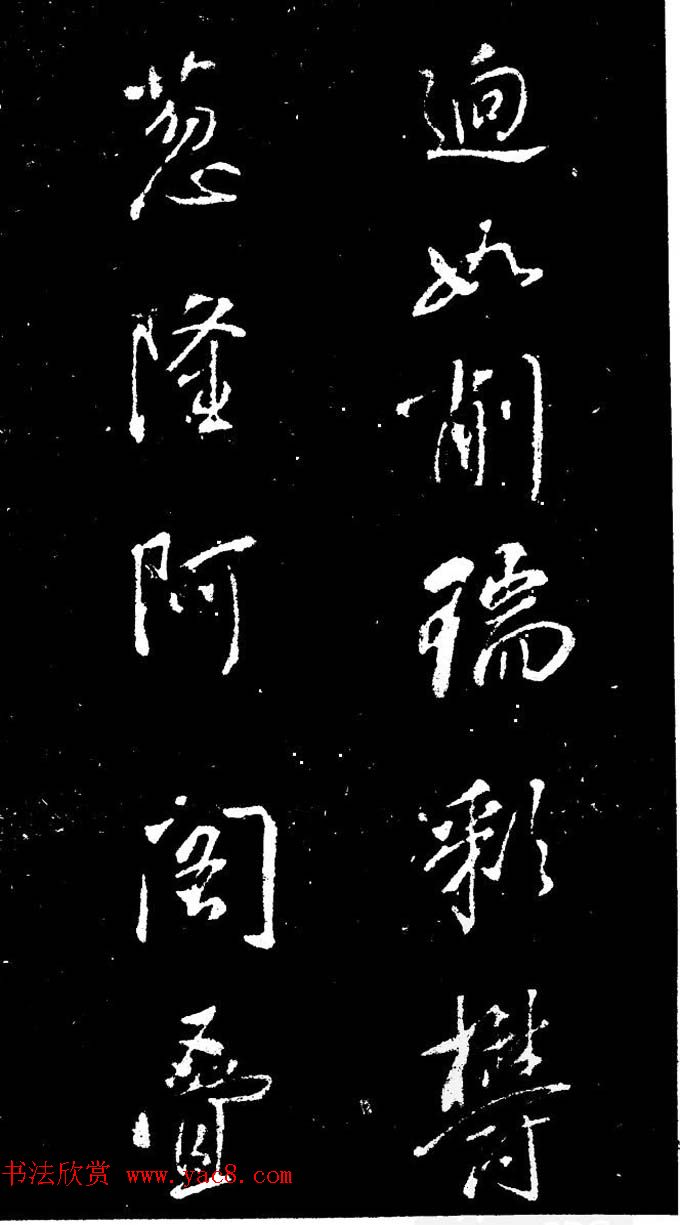 迥如削瑞彩欝
葱隆阿阁叠
书法欣赏 www.yac8.com